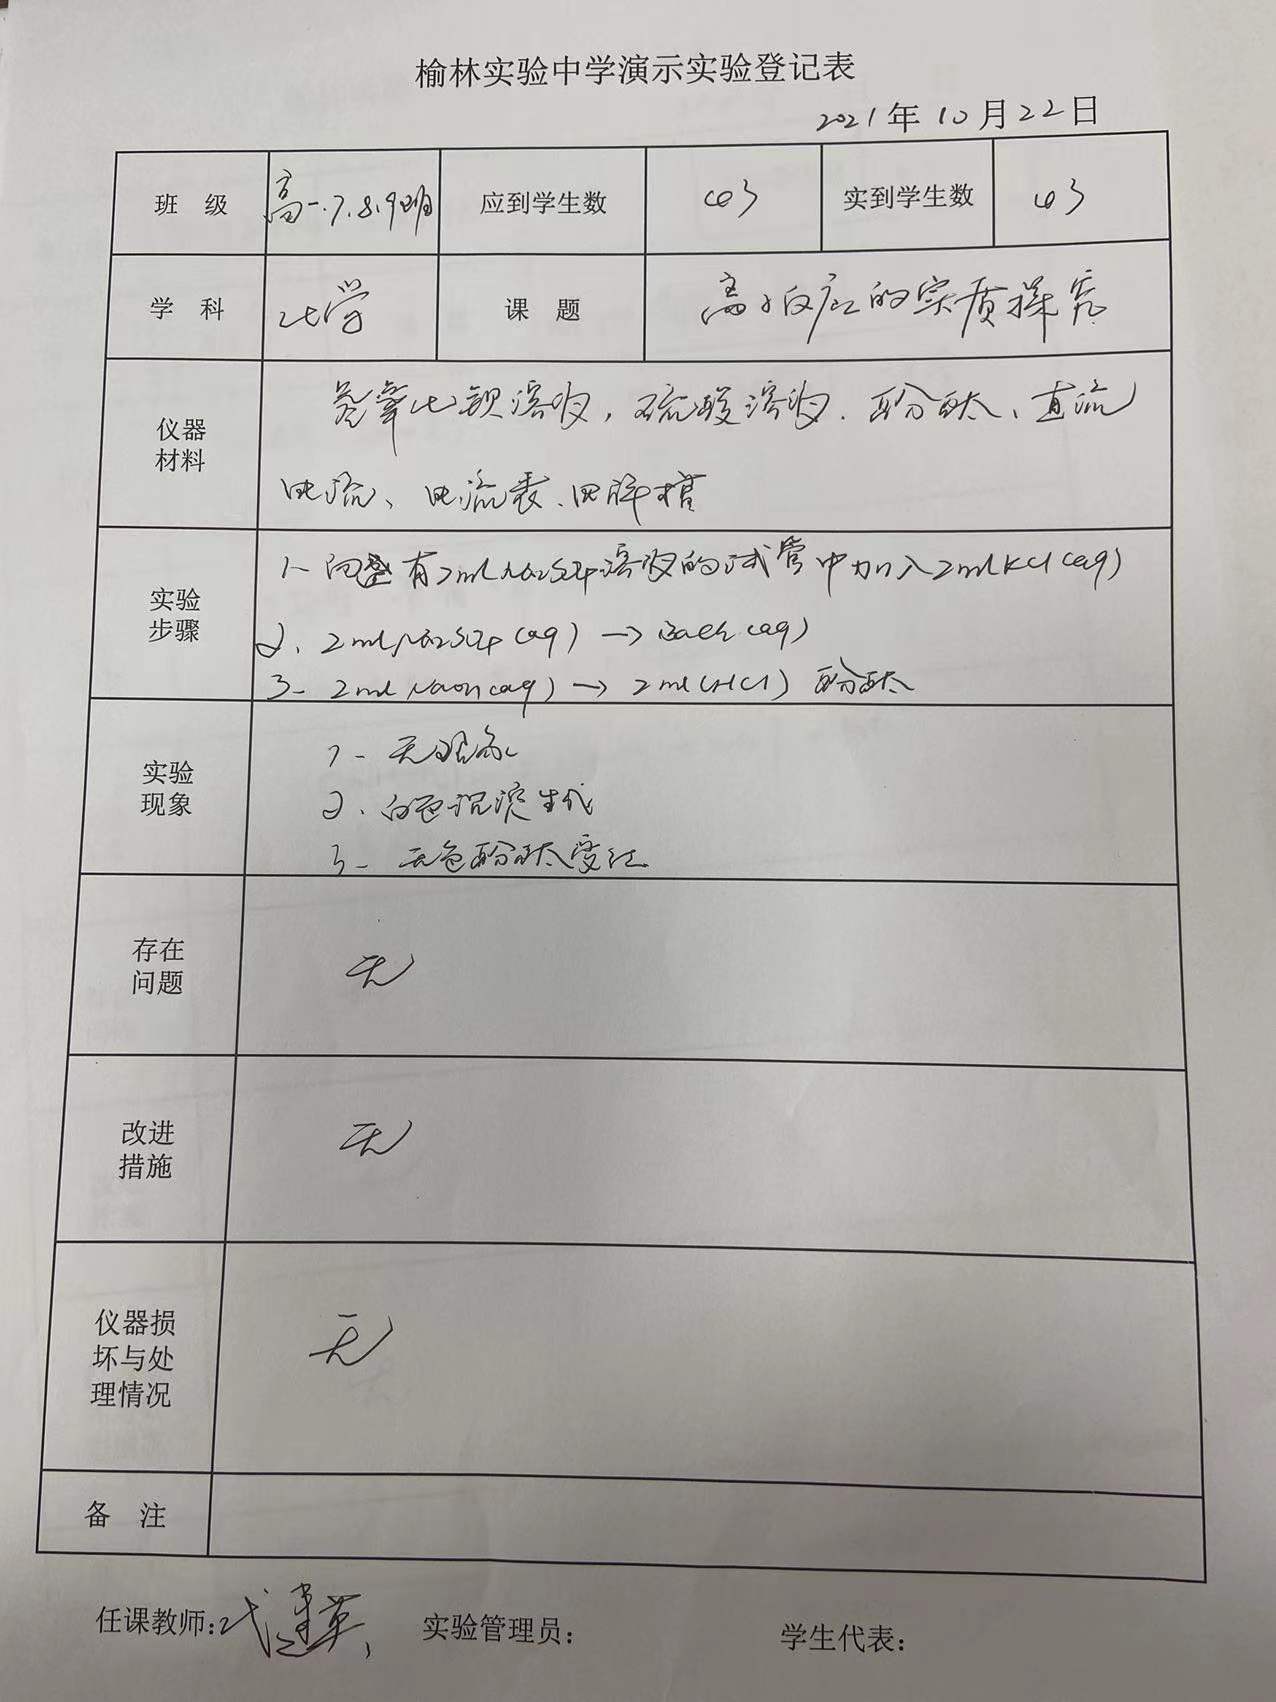 榆林实验中学演示实验登记表
2021年10月22日
班 级 高一.7.8.9班 应到学生数 163 实到学生数 163
学 科 化学 课 题 离子反应的实质探究
仪器材料 氢氧化钡溶液，硫酸溶液．酚酞、直流
电流、电流表．电解槽
实验步骤 1、向盛有2mlNa2SO4溶液的试管中加入2mlKCl(aq)
2、2mlNa2SO4(aq)→BaCl2(aq)
3、2mlNaOH(aq)→2ml(HCl) 酚酞
实验现象 1、无现象
2、白色沉淀生成
3、无色酚酞变红
存在问题 无
改进措施 无
仪器损坏与处理情况 无
备 注
任课教师: 实验管理员: 学生代表: